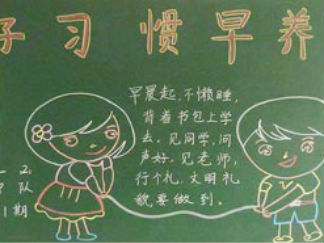 好习惯早养
早晨起,不懒睡,
背着书包上学
去。见同学,问
声好。见老师,
行个礼,文明礼
貌要做到。
队
期